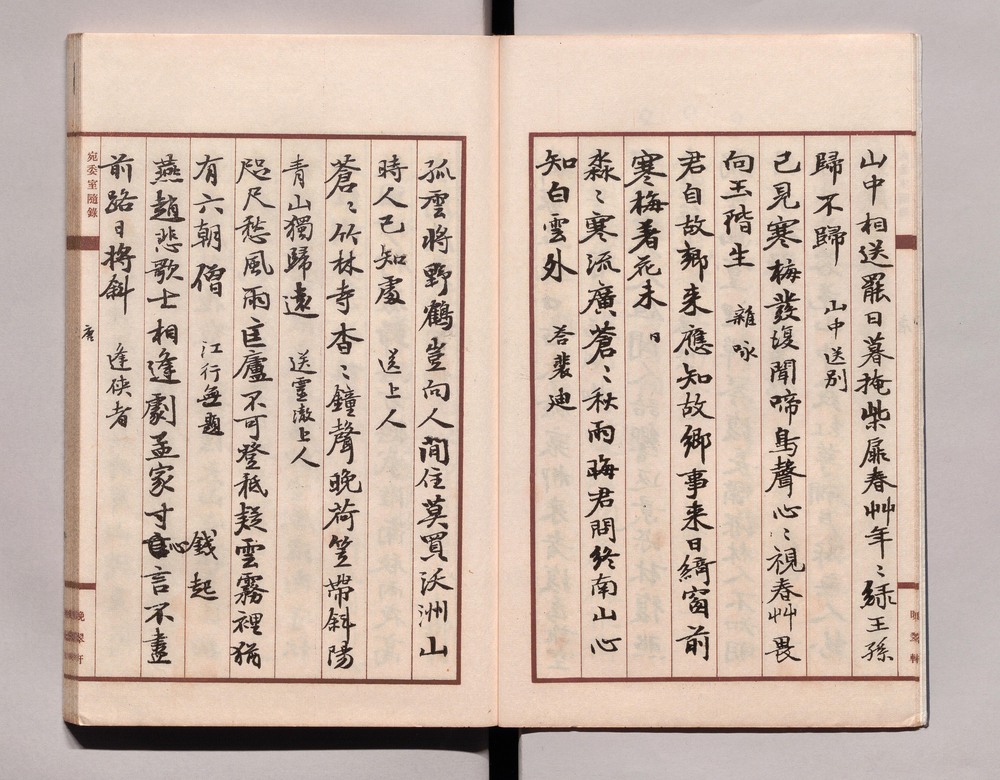 山中相送罷日暮掩柴扉春艸年〻綠王孫
歸不歸　山中送别
已見寒梅發復聞啼鳥聲心〻視春艸畏
向玉階生　雜咏
君自故鄉来應知故鄉事来日綺窗前
寒梅著花未
日
淼〻寒流廣蒼〻秋雨晦君問終南山心
知白雲外　荅裴迪
孤雲將野鶴豈向人間住莫買沃洲山
時人已知處　送上人
蒼〻竹林寺杳〻鐘聲晚荷笠帶斜陽
青山獨歸遠　送靈澈上人
咫尺愁風雨匡廬不可登秖疑雲霧裡猶
有六朝僧　江行無題　錢起
燕趙悲歌士相逢劇孟家寸心言不盡
前路日將斜　逢俠者
宛委室隨錄
唐
晚翠軒